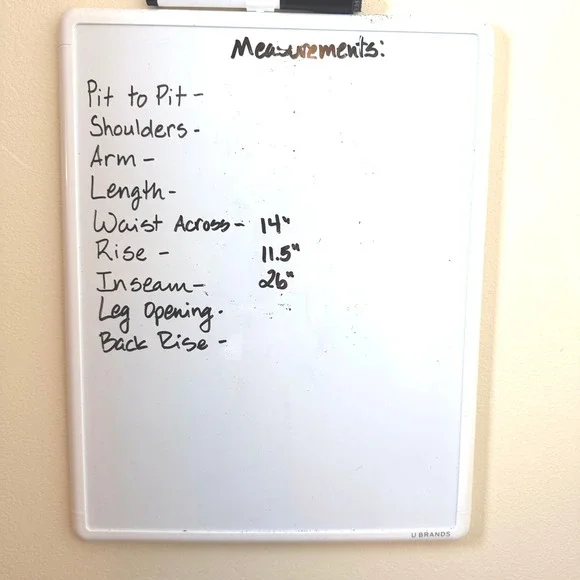 Measurements:
Pit to Pit -
Shoulders -
Arm -
Length -
Waist Across - 14"
Rise - 11.5"
Inseam - 26"
Leg Opening -
Back Rise -
U BRANDS